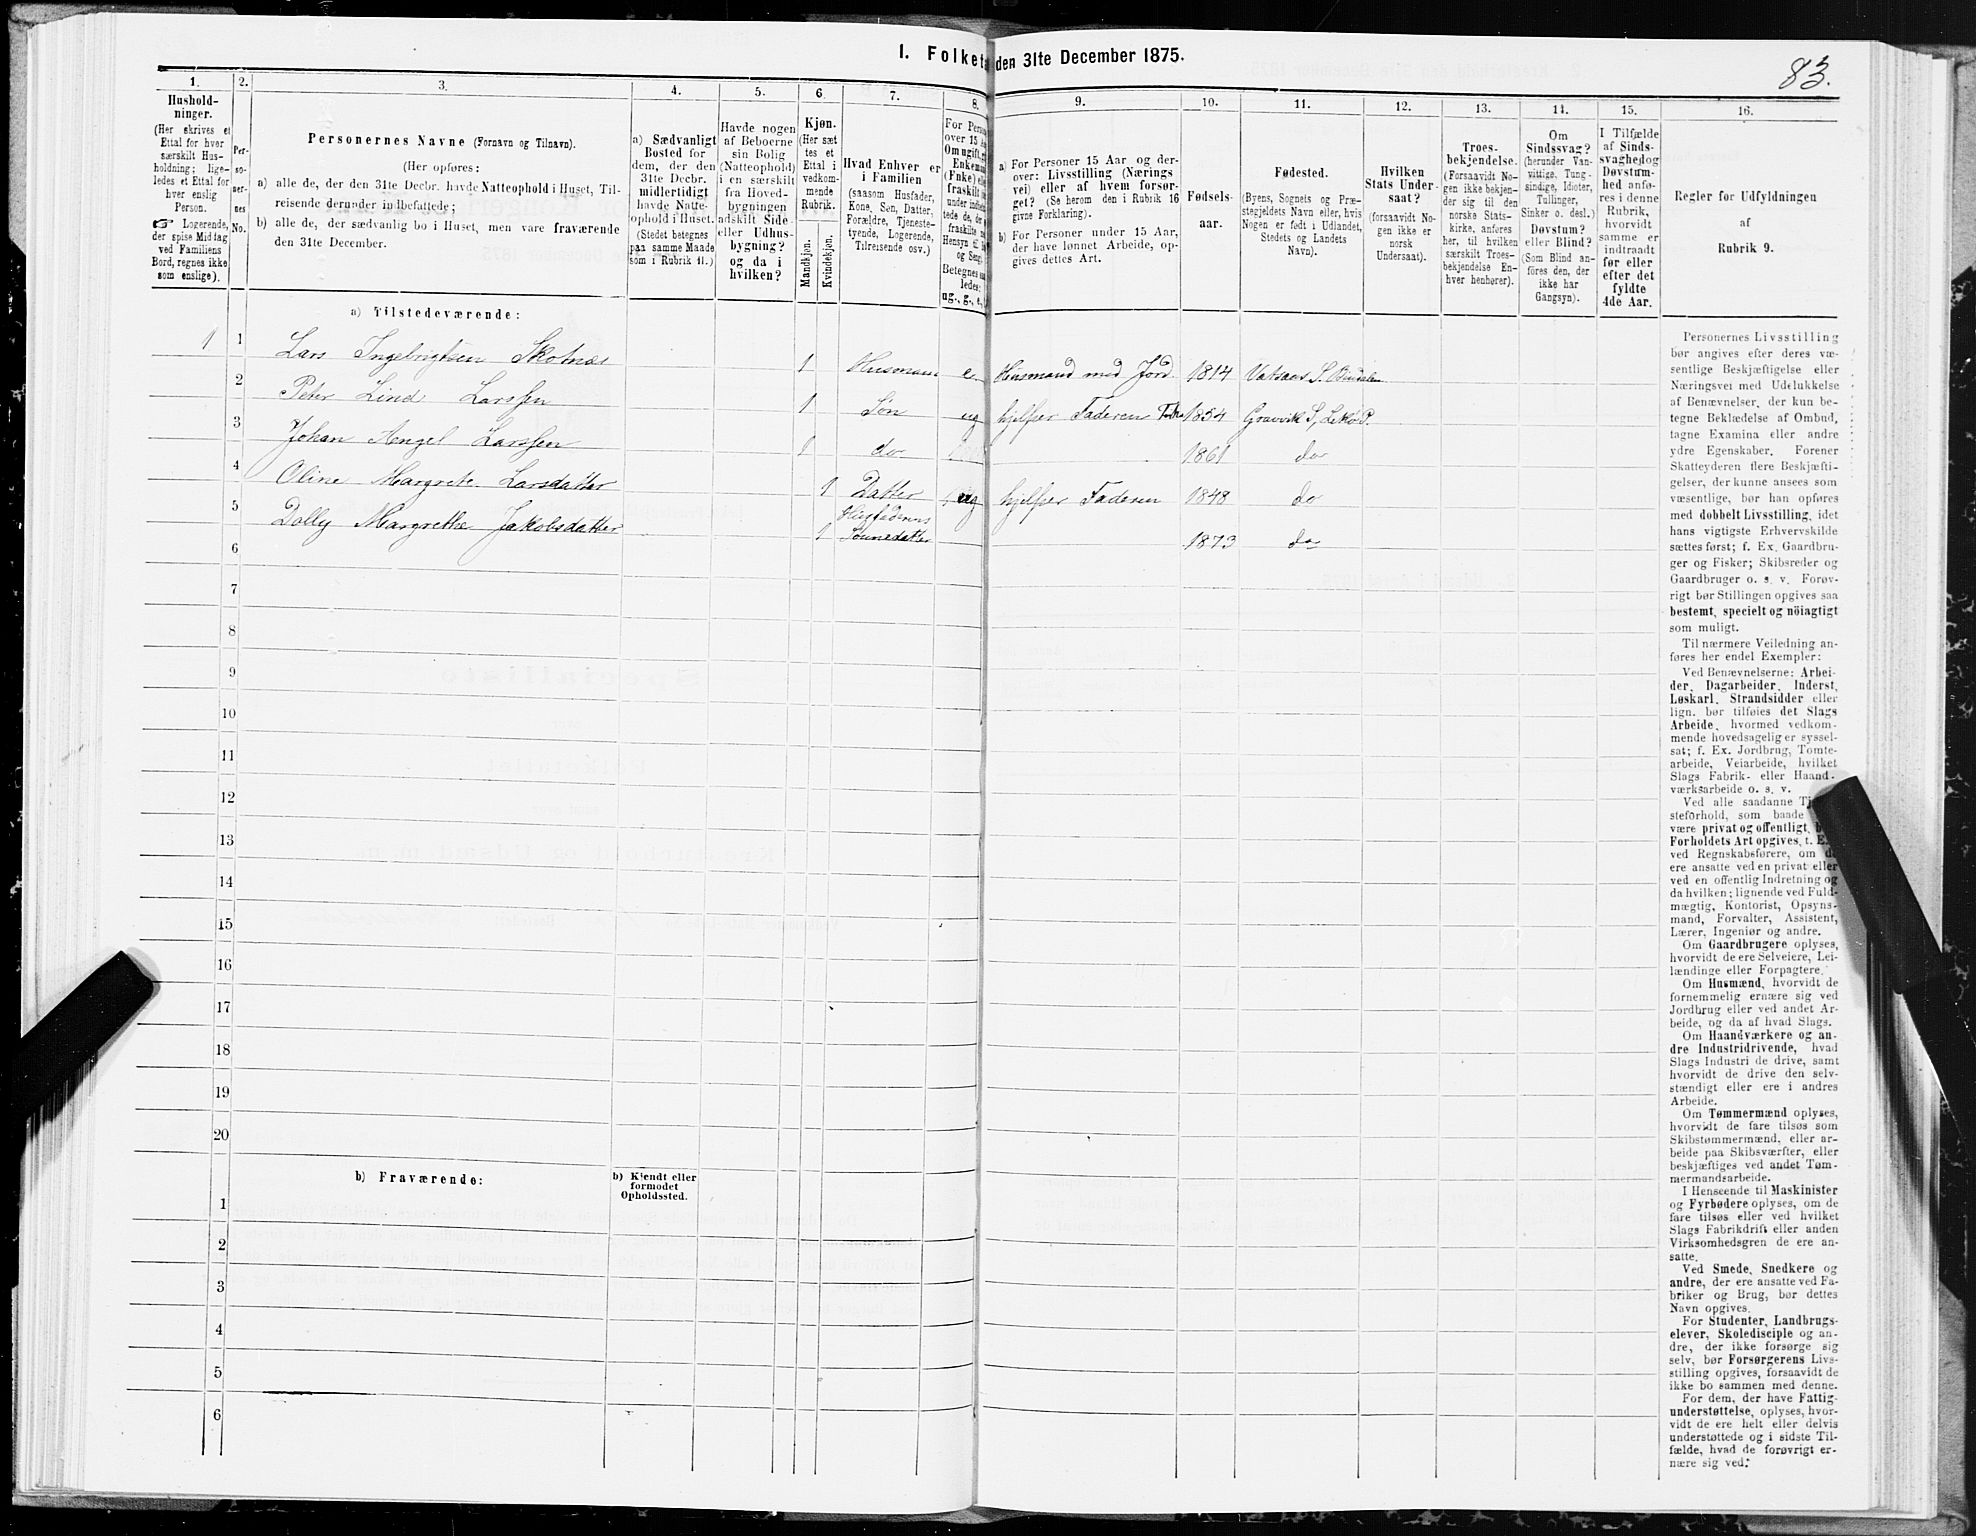 I. Folketæ den 31te December 1875.
83.
1.
Hushold-
ninger.
(Her skrives et
Ettal for hver
særskilt Hus-
holdning; lige-
ledes et Ettal for
hver enslig
Person.
☞ Logerende,
der spise Middag
ved Familiens
Bord, regnes ikke
som enslige).
2.
Per-
so-
ner-
nes
No.
3.
Personernes Navne (Fornavn og Tilnavn).
(Her opføres:
a) alle de, der den 31te Decbr. havde Natteophold i Huset, Til-
reisende derunder indbefattede;
b) alle de, der sædvanlig bo i Huset, men vare fraværende
den 31te December.
4.
a) Sædvanligt
Bosted for
dem, der den
31te Decbr.
midlertidigt
havde Natte-
ophold i Huset.
(Stedet betegnes
paa samme Maade
som i Rubrik 11.)
5.
Havde nogen
af Beboerne
sin Bolig
(Natteophold)
i en særskilt
fra Hoved-
bygningen
adskilt Side-
eller Udhus-
bygning?
og da i
hvilken?
6.
Kjøn.
(Her sæt-
tes et
Ettal i
vedkom-
mende
Rubrik.
Mandkjøn.
Kvindekjøn.
7.
Hvad Enhver er
i Familien
(saasom Husfader,
Kone, Søn, Datter,
Forældre, Tjeneste-
tyende, Logerende,
Tilreisende osv.)
8.
For Perso
over 15 A
Om ugift, g
Enkem
(Fnke) el
fraskilt
9.
a) For Personer 15 Aar og der-
over: Livsstilling (Nærings
vei) eller af hvem forsør-
get? (Se herom den i Rubrik 16
givne Forklaring).
b) For Personer under 15 Aar,
der have lønnet Arbeide, op-
gives dettes Art.
10.
Fødsels-
aar.
11.
Fødested.
(Byens, Sognets og Præ-
stegjeldets Navn eller, hvis
Nogen er født i Udlandet,
Stedets og Landets
Navn).
12.
Hvilken
Stats Under-
saat?
(forsaavidt No-
gen ikke er
norsk
Undersaat).
13.
Troes-
bekjendelse.
(Forsaavidt No-
gen ikke bekjen-
der sig til den
norske Stats-
kirke, anføres
her, til hvilken
særskilt Troes-
bekjendelse En-
hver henhører).
14.
Om
Sindssvag?
(herunder Van-
vittige, Tung-
sindige, Idioter,
Tullinger,
Sinker o. desl.)
Døvstum?
eller Blind?
(Som Blind an-
føres den, der
ikke har
Gangsyn).
15.
I Tilfælde
af Sinds-
svaghed og
Døvstum-
hed anfø-
res i denne
Rubrik,
hvorvidt
samme er
indtraadt
før eller
efter det
fyldte
4de Aar.
16.
Regler for Udfyldningen
af
Rubrik 9.
a) Tilstedeværende:
1 1 Lars Ingebrigtsen Skotnes 1 Husmand e Husmand med Jord 1814 Vatsaas S. Bindalen
2 Peter Lind Larssen 1 Søn ug hjelper Faderen 1854 Gravvik S, Lekø P.
3 Johan Angel Larssen 1 do 1861 do
4 Oline Margrete Larsdatter 1 Datter ug hjelper Faderen 1848 do
5 Dolly Margrethe Jakobsdatter 1 Husfaderens Sønnedatter 1873 do
6
7
8
9
10
11
12
13
14
15
16
17
18
19
20
b) Fraværende:
b) Kjendt eller
formodet
Opholdssted.
1
2
3
4
5
6
Personernes Livsstilling
bør angives efter deres væ-
sentlige Beskjæftigelse eller
Næringsvei med Udelukkelse
af Benævnelser, der kun be-
tegne Beklædelse af Ombud,
tagne Examina eller andre
ydre Egenskaber. Forener
Skatteyderen flere Beskjæfti-
gelser, der kunne ansees som
væsentlige, bør han opføres
med dobbelt Livsstilling, idet
hans vigtigste Erhvervskilde
sættes først; f. Ex. Gaardbru-
ger og Fisker; Skibsreder og
Gaardbruger o. s. v. Forøv-
rigt bør Stillingen opgives saa
bestemt, specielt og nöiagtigt
som muligt.
Til nærmere Veiledning an-
føres her endel Exempler:
Ved Benævnelserne: Arbei-
der, Dagarbeider, Inderst,
Løskarl, Strandsidder eller
lign. bør tilføies det Slags
Arbeide, hvormed vedkom-
mende hovedsagelig er syssel-
sat; f. Ex. Jordbrug, Tomte-
arbeide, Veiarbeide, hvilket
Slags Fabrik- eller Haand-
værksarbeide o. s. v.
Ved alle saadanne Tj
steforhold, som baade
være privat og offentligt, b
Forholdets Art opgives, t. E
ved Regnskabsførere, om d
ere ansatte ved en privat eller
ved en offentlig Indretning og
da hvilken; lignende ved Fuld-
mægtig, Kontorist, Opsyns-
mand, Forvalter, Assistent,
Lærer, Ingeniør og andre.
Om Gaardbrugere oplyses,
hvorvidt de ere Selveiere, Lei-
lændinge eller Forpagtere.
Om Husmænd, hvorvidt de
fornemmelig ernære sig ved
Jordbrug eller ved andet Ar-
beide, og da af hvad Slags.
Om Haandværkere og an-
dre Industridrivende, hvad
Slags Industri de drive, samt
hvorvidt de drive den selv-
stændigt eller ere i andres
Arbeide.
Om Tømmermænd oplyses,
hvorvidt de fare tilsøs som
Skibstømmermænd, eller ar-
beide paa Skibsværfter, eller
beskjæftiges ved andet Tøm-
mermandsarbeide.
I Henseende til Maskinister
og Fyrbødere oplyses, om de
fare tilsøs eller ved hvilket
Slags Fabrikdrift eller anden
Virksomhedsgren de ere an-
satte.
Ved Smede, Snedkere og
andre, der ere ansatte ved Fa-
briker og Brug, bør dettes
Navn opgives.
For Studenter, Landbrugs-
elever, Skoledisciple og an-
dre, der ikke forsørge sig
selv, bør Forsørgerens Livs-
stilling opgives, forsaavidt de
ikke bo sammen med denne.
For dem, der have Fattig-
understøttelse, oplyses, hvor-
vidt de ere helt eller delvis
understøttede og i sidste Til-
fælde, hvad de forøvrigt er-
nære sig ved.